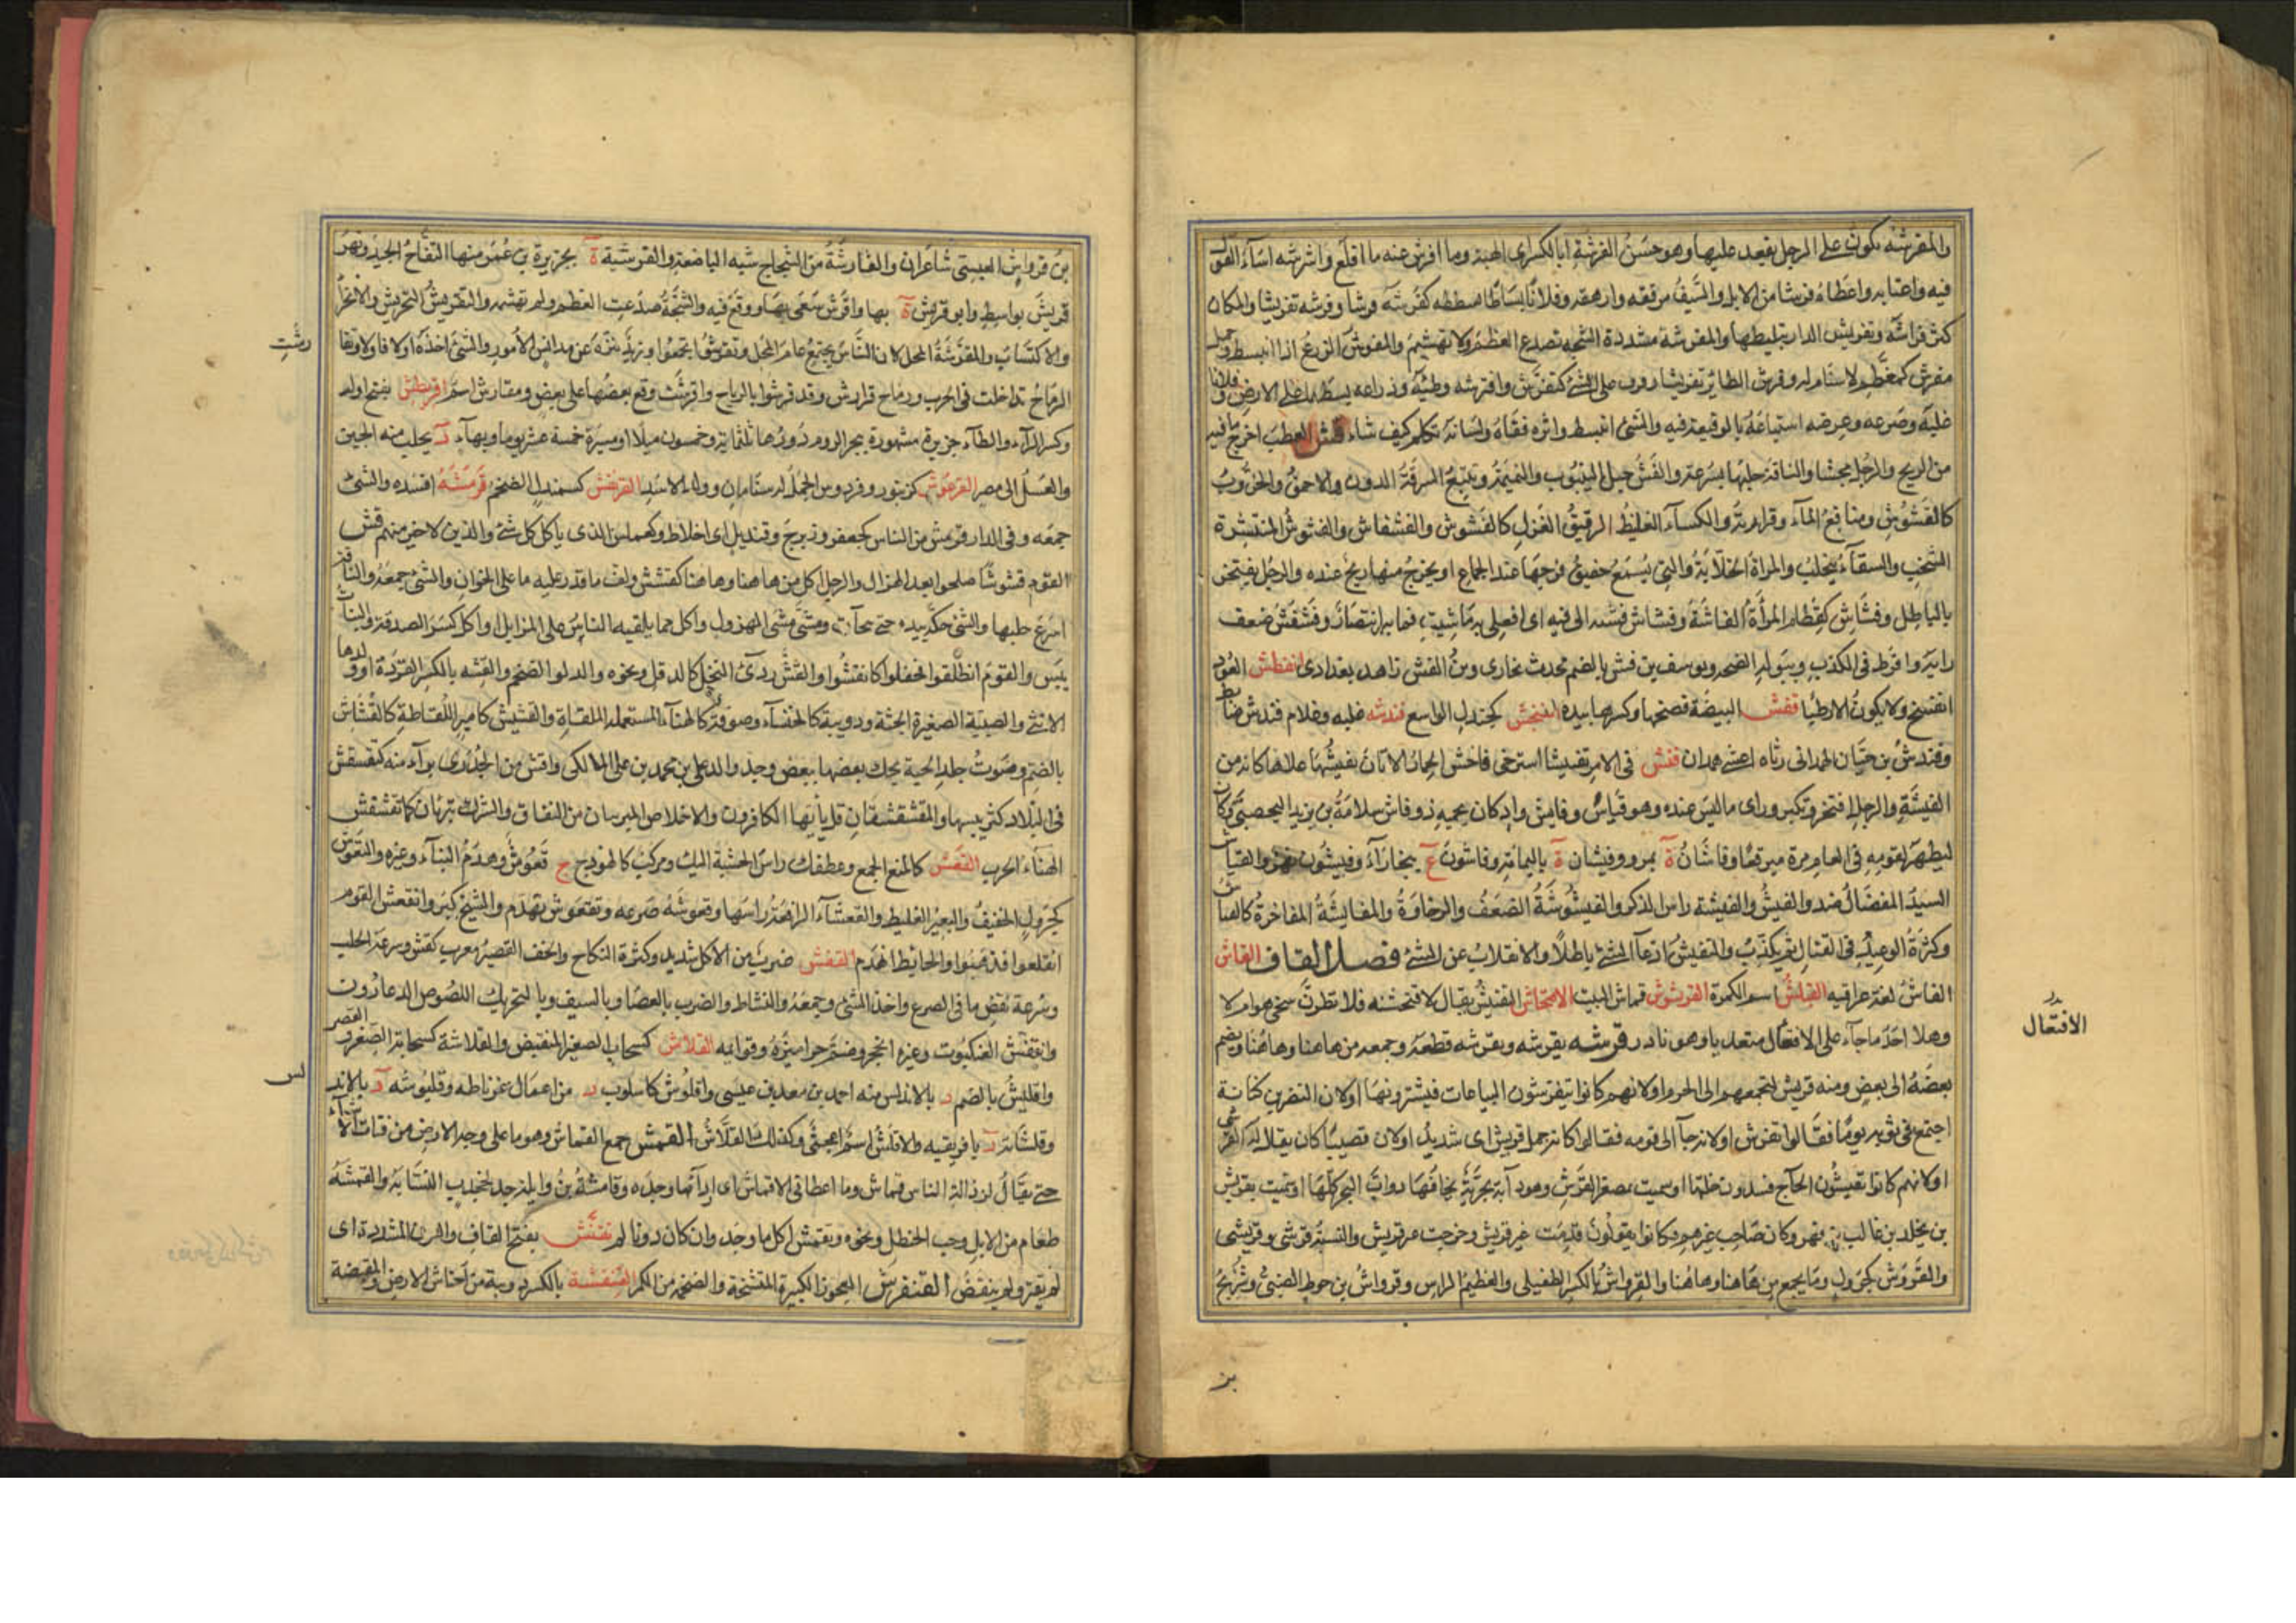 والمفرشة تكون على الرحل يقعد عليها وهو حسن الفرشة بالكسر اى الهيئة وما افرش عنه ما اقلع وافرشه اساء القول
فيه واغتابه واعطاه فرشا من الابل والسيف رققه وارهقه وفلانا بساطا بسطه كفرشه فرشا وفرشه تفريشا والمكان
كثر فراشه وتفريش الدار تبليطها والمفرشة مشددة الشجة تصدع العظم ولا تهشم والمفرش الزرع اذا انبسط وجمل
مفرش كمعظم لا سنام له وفرش الطائر تفريشا رفرف على الشئ كتفرش وافترشه وطئه وذراعيه بسطهما على الارض وفلانا
غلبه وصرعه وعرضه استباحه بالوقيعة فيه والشئ انبسط واثره قفاه ولسانه تكلم كيف شاء فش الوطب اخرج ما فيه
من الريح والرجل تجشا والناقة حلبها بسرعة والفش حمل الينبوت والنميمة وتتبع السرقة الدون والاحمق والخروب
كالفشوش ومناقع الماء وقرارته والكساء الغليظ الرقيق الغزل كالفشوش والفشفاش والفشوش المنتشرة
الشخب والسقاء يتحلب والمراة الحلابة والتى يسمع حفيف فرجها عند الجماع او يخرج منها ريح عنده والرجل يفتخر
بالباطل وفشاش كقطام المرأة الفاشة وفشاش فشيه الى فيه اى افعلى به ما شئت فما به انتصار وفشفش ضعف
رايه وافرط فى الكذب وببوله انضحه ويوسف بن فش بالضم محدث بخارى وبن الفش زاهد بغدادى انفطش العود
انفسخ ولا يكون الا رطبا قفش البيضة فضخها وكسرها بيده الفنجش كجندل الواسع فندشه غلبه وغلام فندش ضابط
وفندش بن حيان الهمدانى رثاه اعشى همدان فنش فى الامر تفنيشا استرخى فاخش الحمار الاتان يفيشها علاها كانه من
الفيشة والرجل افتخر وتكبر وراى ما ليس عنده وهو فياش وفايش واد كان يحميه ذو فايش سلامة بن يزيد اليحصبى وكان
ليظهر لقومه فى العام مرة مبرقعا وفاشان ة بمرو وفيشان ة باليمامة وفاشون ع ببخاراء وفيشون نهر والفياش
السيد المفضال ضد والفيش والفيشة راس الذكر والفيشوشة الضعف والرخاوة والمفايشة المفاخرة كالفياش
وكثرة الوعيد فى القتال ثم يكذب والتفيش ادعاء الشئ باطلا والانقلاب عن الشئ فصل القاف القاش
القاش لغة عراقية القبلش اسم الكمرة القربشوش قماش البيت الاقتحاش التفتيش يقال لاقتحشنه فلانظرن سخى هو ام لا
وهذا احد ما جاء على الافتعال متعديا وهو نادر قرشه يقرشه ويقرشه قطعه وجمعه من هاهنا وهاهنا وضم
بعضه الى بعض ومنه قريش لتجمعهم الى الحرم او لانهم كانوا يتقرشون البياعات فيشترونها او لان النضر بن كنانة
اجتمع فى ثوبه يوما فقالوا تقرش او لانه جآ الى قومه فقالوا كانه جمل قريش اى شديد او لان قصيا كان يقال له القرشى
او لانهم كانوا يفتشون الحآج فيسدون خلتها او سميت بمصغر القرش وهو دآبة بحرية تخافها دواب البحر كلها او سميت بقريش
بن يخلد بن غالب بن فهر وكان صاحب عيرهم فكانوا يقولون قدمت عير قريش وخرجت عير قريش والنسبة قرشى وقريشى
والقروش كجرول وما يجمع من هاهنا وهاهنا والقرواش بالكسر الطفيلى والعظيم الراس وقرواش بن حوط الضبى وشريح
الافتعال
بن قرواش العبسى شاعران والقارشة من الشجاج شبه الباضعة والقرشية ة بجزيرة بن عمر منها التفاح الجيد ونهر
قريش بواسط وابو قريش ة بها واقرش سعى بها ووقع فيه والشجة صدعت العظم ولم تهشمه والتقريش التحريش والاغرآ
والاكتساب والمقرشة المحل لان الناس يجتمع عام المحل وتقرشوا تجمعوا وزيد تنزه عن مدانس الامور والشئ اخذه اولا فاولا وتقا
رشت
الرماح تداخلت فى الحرب ورماح قوارش وقد قرشوا بالرماح واقرشت وقع بعضها على بعض ومقارش اسم اقريطش بفتح اوله
وكسر الرآء والطآء جزيرة مشهورة ببحر الروم دورها ثلثمائة وخمسون ميلا او مسيرة خمسة عشر يوما وبهاء د يجلب منه الجبن
والعسل الى مصر القرعوش كزنبور وفردوس الجمل له سنامان وولد الاسد القرنفش كسمندل الضخم قرمشه افسده والشئ
جمعه وفى الدار قرمش من الناس كجعفر وزبرج وقنديل اى اخلاط وكعملس الذى ياكل كل شئ والذين لا خير منهم قش
القوم قشوشا صلحوا بعد الهزال والرجل اكل من هاهنا وهاهنا كقشش ولف ما قدر عليه مما على الخوان والشئ جمعه والناقة
اسرع حلبها والشئ حكه بيده حتى تحات ومشى مشى المهزول واكل مما يلقيه الناس على المزابل او اكل كسر الصدقة والنبات
يبس والقوم انطلقوا فجفلوا كانقشوا والقش ردئ النخل كالدقل ونحوه والدلو الضخم والقشة بالكسر القردة او ولدها
الانثى والصبية الصغيرة الجثة ودويبة كالخنفسآء وصوفة كالهنآء المستعملة الملقاة والقشيش كامير اللقاطة كالقشاش
بالضم وصوت جلد الحية يحك بعضها ببعض وجد والد على بن محمد بن على المالكى واقش من الجدرى برآء منه كتقشقش
فى البلاد كثر يبسها والمقشقشتان قل يايها الكافرون والاخلاص المبريان من النفاق والشرك تبريان كما تقشقش
الهنآء الجرب القعش كالمنع الجمع وعطفك راس الخشبة اليك ومركب كالهودج ج قعوش وهدم البنآء وغيره والقعوش
كجرول الخفيف والبعير الغليظ والقعشآء الرافعة راسها وقعوشه صرعه وتقعوش تهدم والشيخ كبر وانقعش القوم
انقلعوا فذهبوا والحايط انهدم القفش ضرب من الاكل شديد وكثرة النكاح والخف القصير معرب كفش وسرعة الحلب
وسرعة نفض ما فى الضرع واخذ الشئ وجمعه والنشاط والضرب بالعصا وبالسيف وبالتحريك اللصوص الدعارون
وانقفش العنكبوت وغيره انجحر وضم جراميزه وقوائمه القلاش كسحاب الصغير المنقبض والقلاشة كسحابة الصغر والقصر
واقليش بالضم د بالاندلس منه احمد بن معد بن عيسى واقلوش كاسلوب د من اعمال غرناطه وقليوشه د بالاند
لس
وقلشانة د بافريقيه والاقلش اسم اعجمى وكذلك القلاش القمش جمع القماش وهو ما على وجه الارض من فتات الاشيآء
حتى يقال لرذالة الناس قماش وما اعطانى الا قماشا اى اردأ ما وجده وقامشة بن وايلة جد لجخدب النسابة والقمشه
طعام من الابل وحب الحنظل ونحوه وتقمش اكل ما وجد وان كان دونا لم تقنش بفتح القاف والنون المشددة اى
لم يقتر ولم ينقض القنفرش العجوز الكبيرة المتشنجة والضخمة من الكمر القنفشة بالكسر دويبة من احناش الارض والمنقبضة